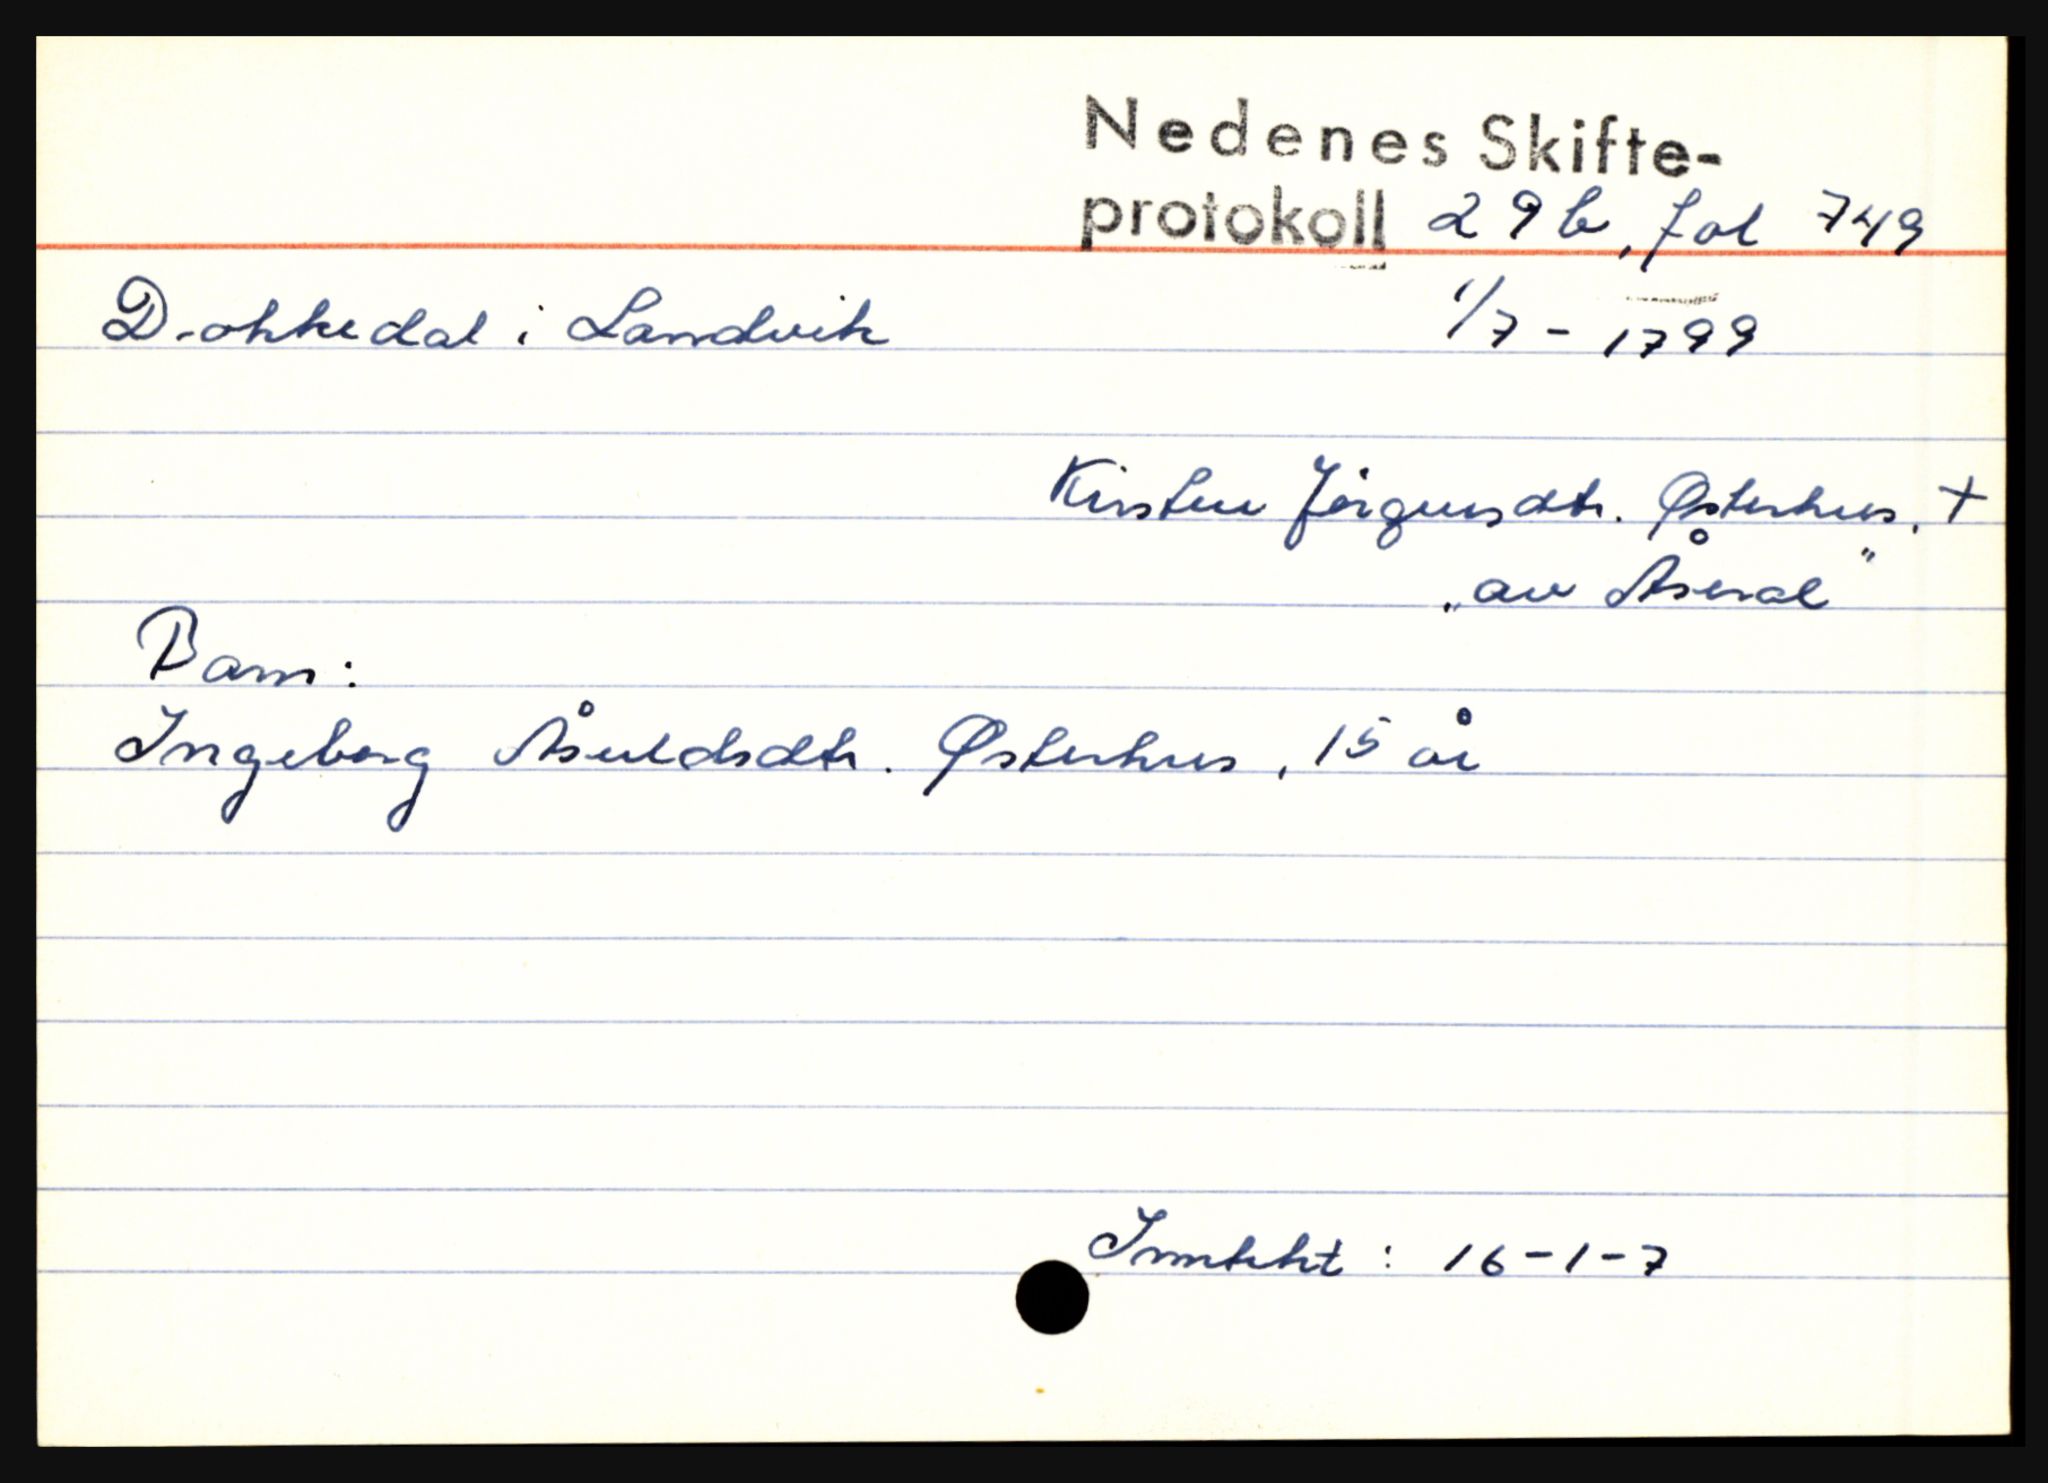 Nedenes Skifte-
protokoll 29b, fol 749
Drokkedal i Landvik 1/7 - 1799
Kirsten Jörgensdtr. Østerhus. +
"av Åseral"
Barn:
Ingeborg Åsuldsdtr. Østerhus, 15 år
Inntekt: 16-1-7